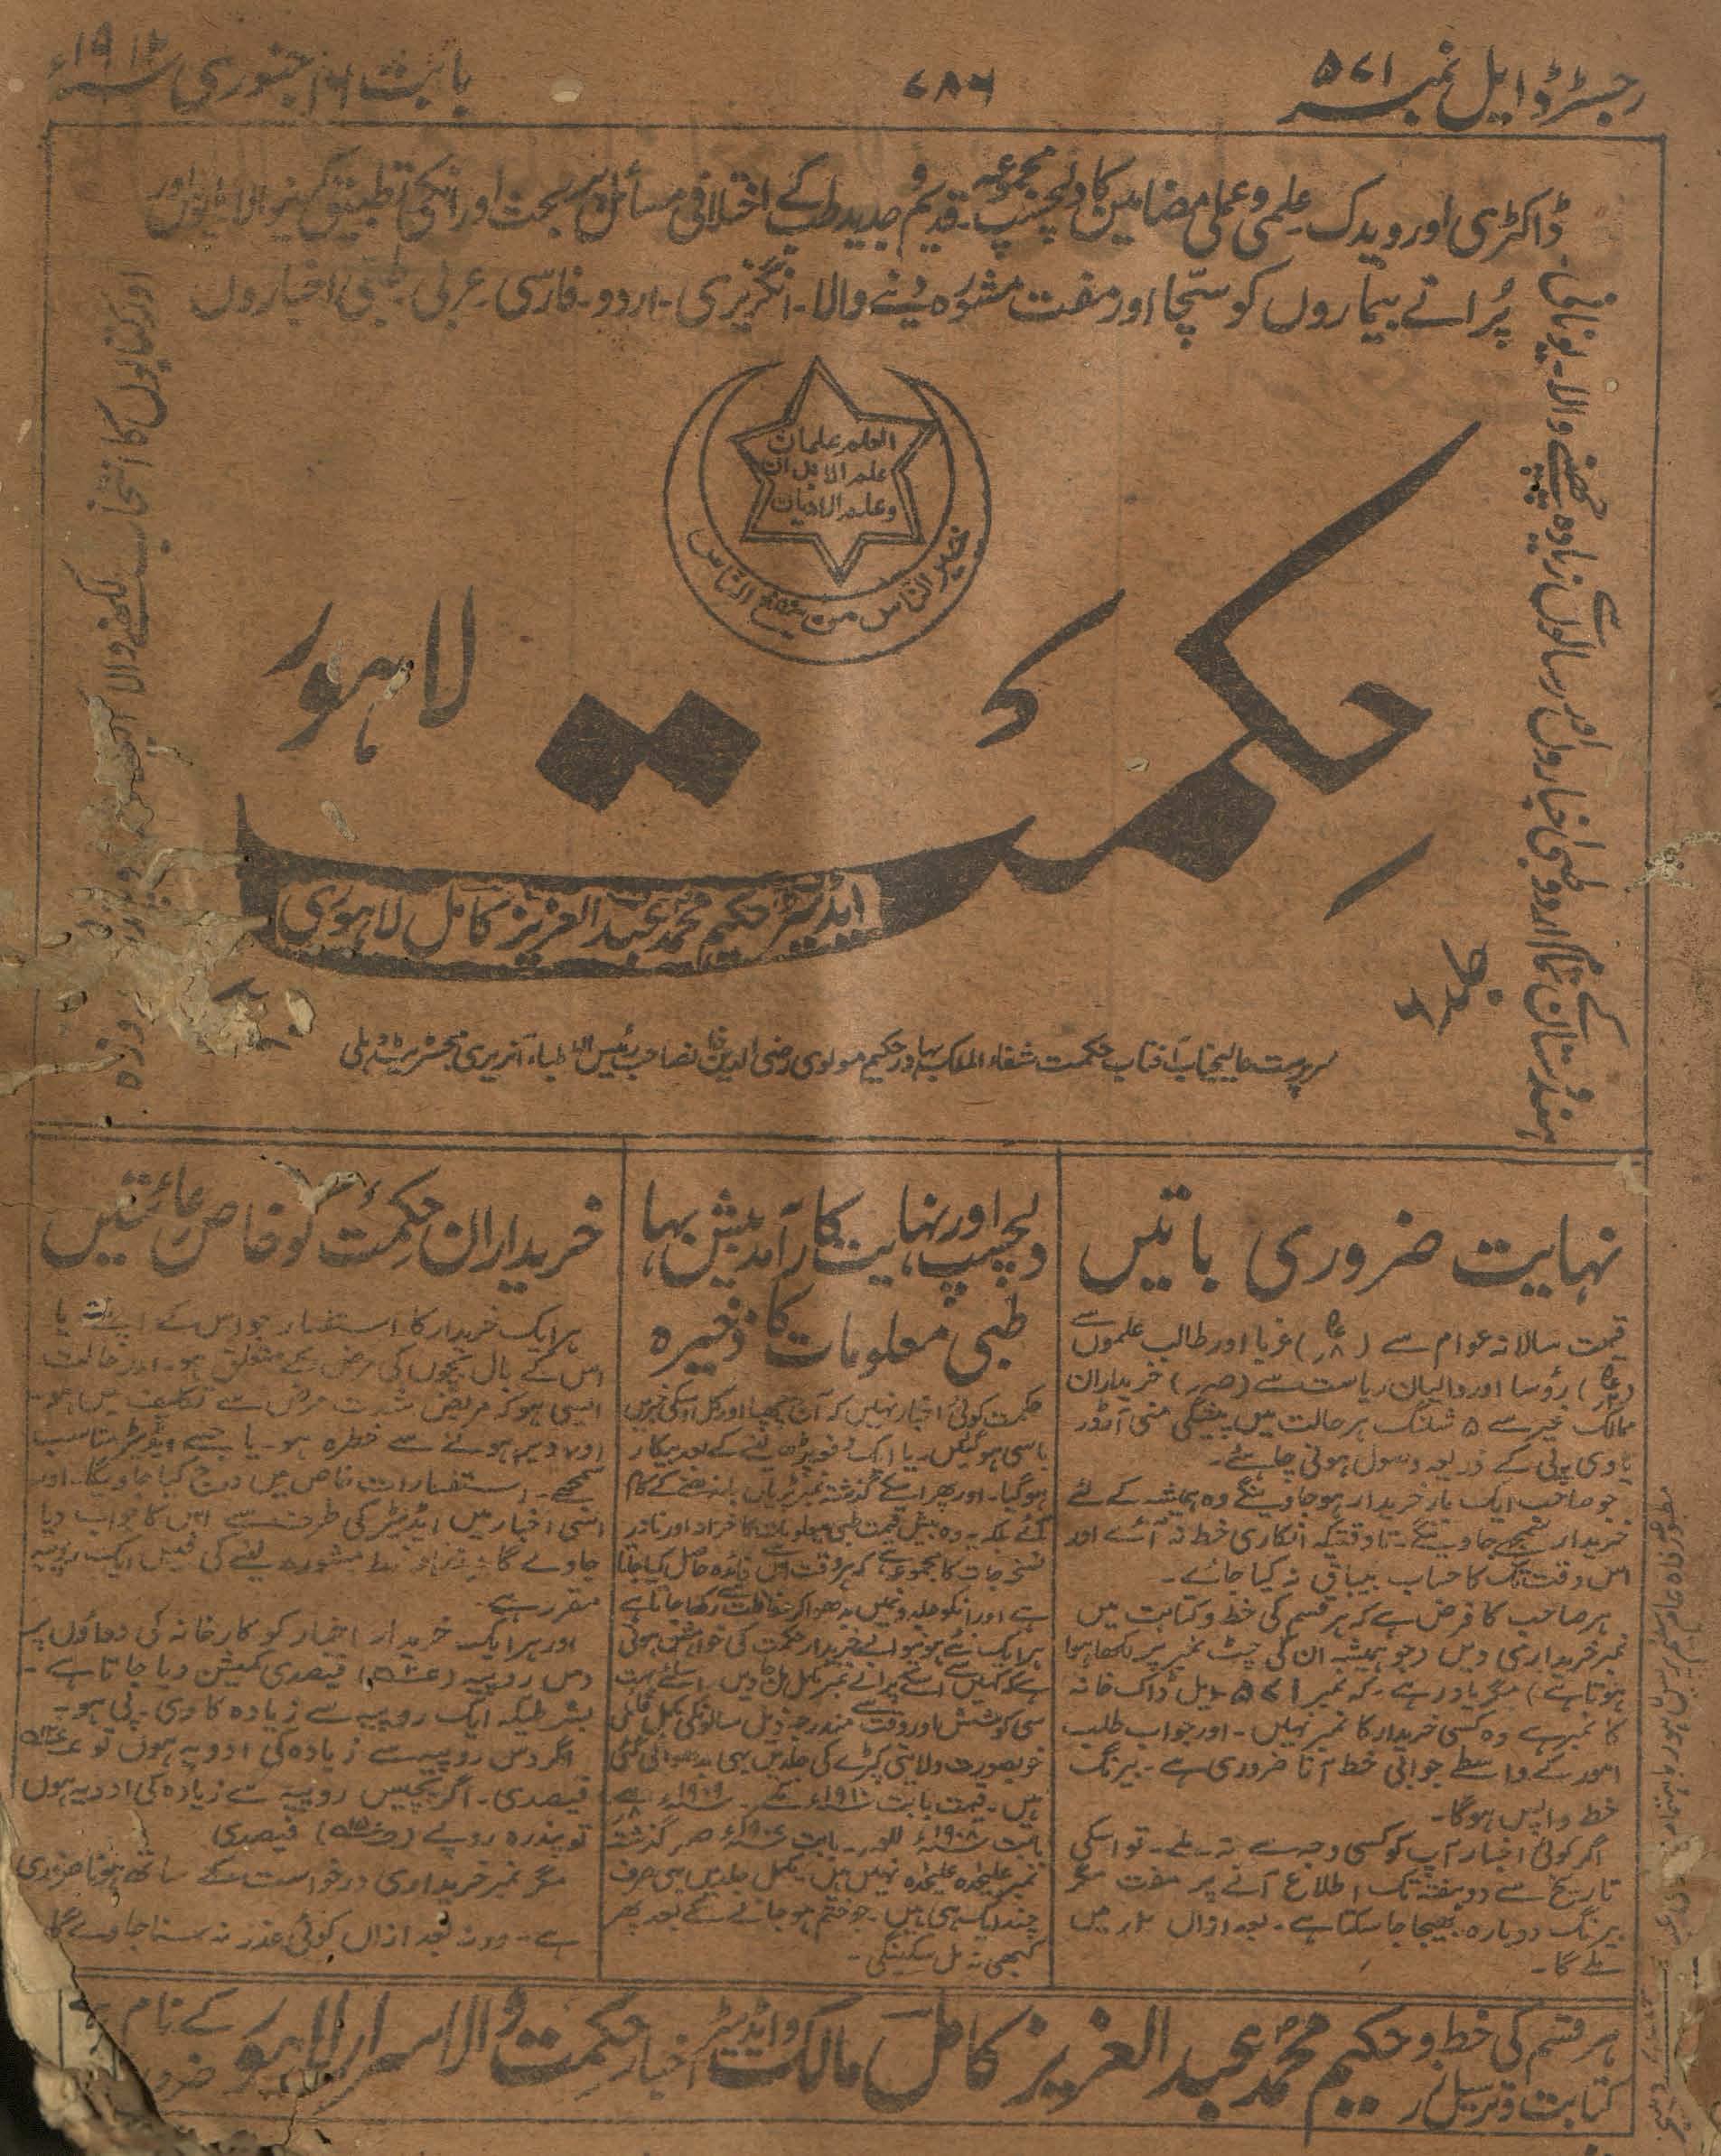 رجسٹرڈ ایل نمبر ۵۷۱
۷۸۶
بابت ۱۶ جنوری سنہ ۱۹۱۲ء
ہندوستان کے تمام اردو طبی اخباروں اور رسالوں سے زیادہ چھپنے والا۔ یونانی۔
ڈاکٹری اور ویدک علمی و عملی مضامین کا دلچسپ مجموعہ۔ قدیم و جدید طب کے اختلافی مسائل پر بحث اور انکی تطبیق کرنیوالا
پرانے بیماروں کو سچا اور مفت مشورہ دینے والا۔ انگریزی۔ اردو۔ فارسی۔ عربی۔ طبی اخباروں
اور کتابوں کا انتخاب لکھنے والا
العلم علمان
علم الابدان
وعلم الادیان
خیر الناس من ینفع الناس
حکمت
لاہور
ایڈیٹر حکیم محمد عبد العزیز کامل لاہوری
سرپرست عالیجناب آفتاب حکمت شفاء الملک بہادر حکیم مولوی رضی الدین خانصاحب رئیس الاطباء آنریری مجسٹریٹ دہلی
نہایت ضروری باتیں
قیمت سالانہ عوام سے غربا اور طالب علموں سے
رؤسا اور والیان ریاست سے خریداران
ممالک غیر سے ۵ شلنگ ہر حالت میں پیشگی منی آرڈر
یا وی پی کے ذریعہ وصول ہونی چاہئے۔
جو صاحب ایک بار خریدار ہو جاوینگے وہ ہمیشہ کے لئے
خریدار سمجھے جاوینگے۔ تاوقتیکہ انکاری خط نہ آئے اور
اس وقت تک کا حساب بیباق نہ کیا جائے۔
ہر صاحب کا فرض ہے کہ ہر قسم کی خط و کتابت میں
نمبر خریداری دیں (جو ہمیشہ ان کی چٹ نمبر پر لکھا ہوا
ہوتا ہے) مگر یاد رہے۔ کہ نمبر ۵۷۱ ایل ڈاک خانہ
کا نمبر ہے وہ کسی خریدار کا نمبر نہیں۔ اور جواب طلب
امور کے واسطے جوابی خط آنا ضروری ہے۔ بیرنگ
خط واپس ہوگا۔
اگر کوئی اخبار آپ کو کسی وجہ سے نہ ملے۔ تو اسکی
تاریخ سے دو ہفتہ تک اطلاع آنے پر مفت مگر
بیرنگ دوبارہ بھیجا جاسکتا ہے۔ بعد ازاں میں
ملے گا۔
دلچسپ اور نہایت کارآمد بیش بہا
طبی معلومات کا ذخیرہ
حکمت کوئی اخبار نہیں کہ آج چھپا اور کل اسکی خبریں
باسی ہو گئیں۔ یا ایک دفعہ پڑھ لینے کے بعد بیکار
ہو گیا۔ اور پھر اسکے گذشتہ نمبر پڑیاں باندھنے کے کام
آئے بلکہ یہ وہ بیش قیمت طبی معلومات کا خزانہ اور نادر
نسخہ جات کا مجموعہ ہے کہ ہر وقت اس سے فائدہ حاصل کیا جاتا
ہے اور انکو جلدوں میں بندھوا کر حفاظت سے رکھا جاتا ہے
ہر ایک نئے ہونیوالے خریدار حکمت کی خواہش ہوتی
ہے کہ کہیں سے اسکے پرانے نمبر مکمل مل جاویں۔ اسلئے بہت
سی کوشش اور وقت سے مندرجہ ذیل سالونکی مکمل فائل
خوبصورت ولایتی کپڑے کی جلدیں بھی بندھوائی گئی
ہیں۔ قیمت بابت سنہ ۱۹۱۰ء سنہ ۱۹۰۹ء
بابت سنہ ۱۹۰۸ء بابت سنہ ۱۹۰۷ء گذشتہ
نمبر علیحدہ علیحدہ نہیں ہیں۔ مکمل جلدیں ہی صرف
چند ایک ہی ہیں۔ جو ختم ہو جانے کے بعد پھر
کبھی نہ مل سکینگی۔
خریداران حکمت کو خاص رعائتیں
ہر ایک خریدار کا استفسار جو اس کے اپنے یا
اس کے بال بچوں کی مرض کے متعلق ہو۔ اور حالت
ایسی ہو کہ مریض شدت مرض سے تکلیف میں ہو
اور دیر ہونے سے خطرہ ہو۔ یا جسے ایڈیٹر مناسب
سمجھے۔ استفسارات خاص میں درج کیا جاویگا۔ اور
اسی اخبار میں ایڈیٹر کی طرف سے اس کا جواب دیا
جاوے گا بذریعہ خط مشورہ لینے کی فیس ایک روپیہ
مقرر ہے۔
اور ہر ایک خریدار اخبار کو کارخانہ کی دواؤں پر
دس روپیہ فیصدی کمیشن دیا جاتا ہے۔
بشرطیکہ ایک روپیہ سے زیادہ کا وی۔ پی ہو۔
اگر دس روپیہ سے زیادہ کی ادویہ ہوں تو
فیصدی۔ اگر پچیس روپیہ سے زیادہ کی ادویہ ہوں
تو پندرہ روپے فیصدی
مگر نمبر خریداری درخواست کے ساتھ ہونا ضروری
ہے۔ ورنہ بعد ازاں کوئی عذر نہ سنا جاوے گا۔
ہر قسم کی خط و کتابت و ترسیل زر حکیم محمد عبد العزیز کامل مالک و ایڈیٹر اخبار حکمت و الاسرار لاہور کے نام